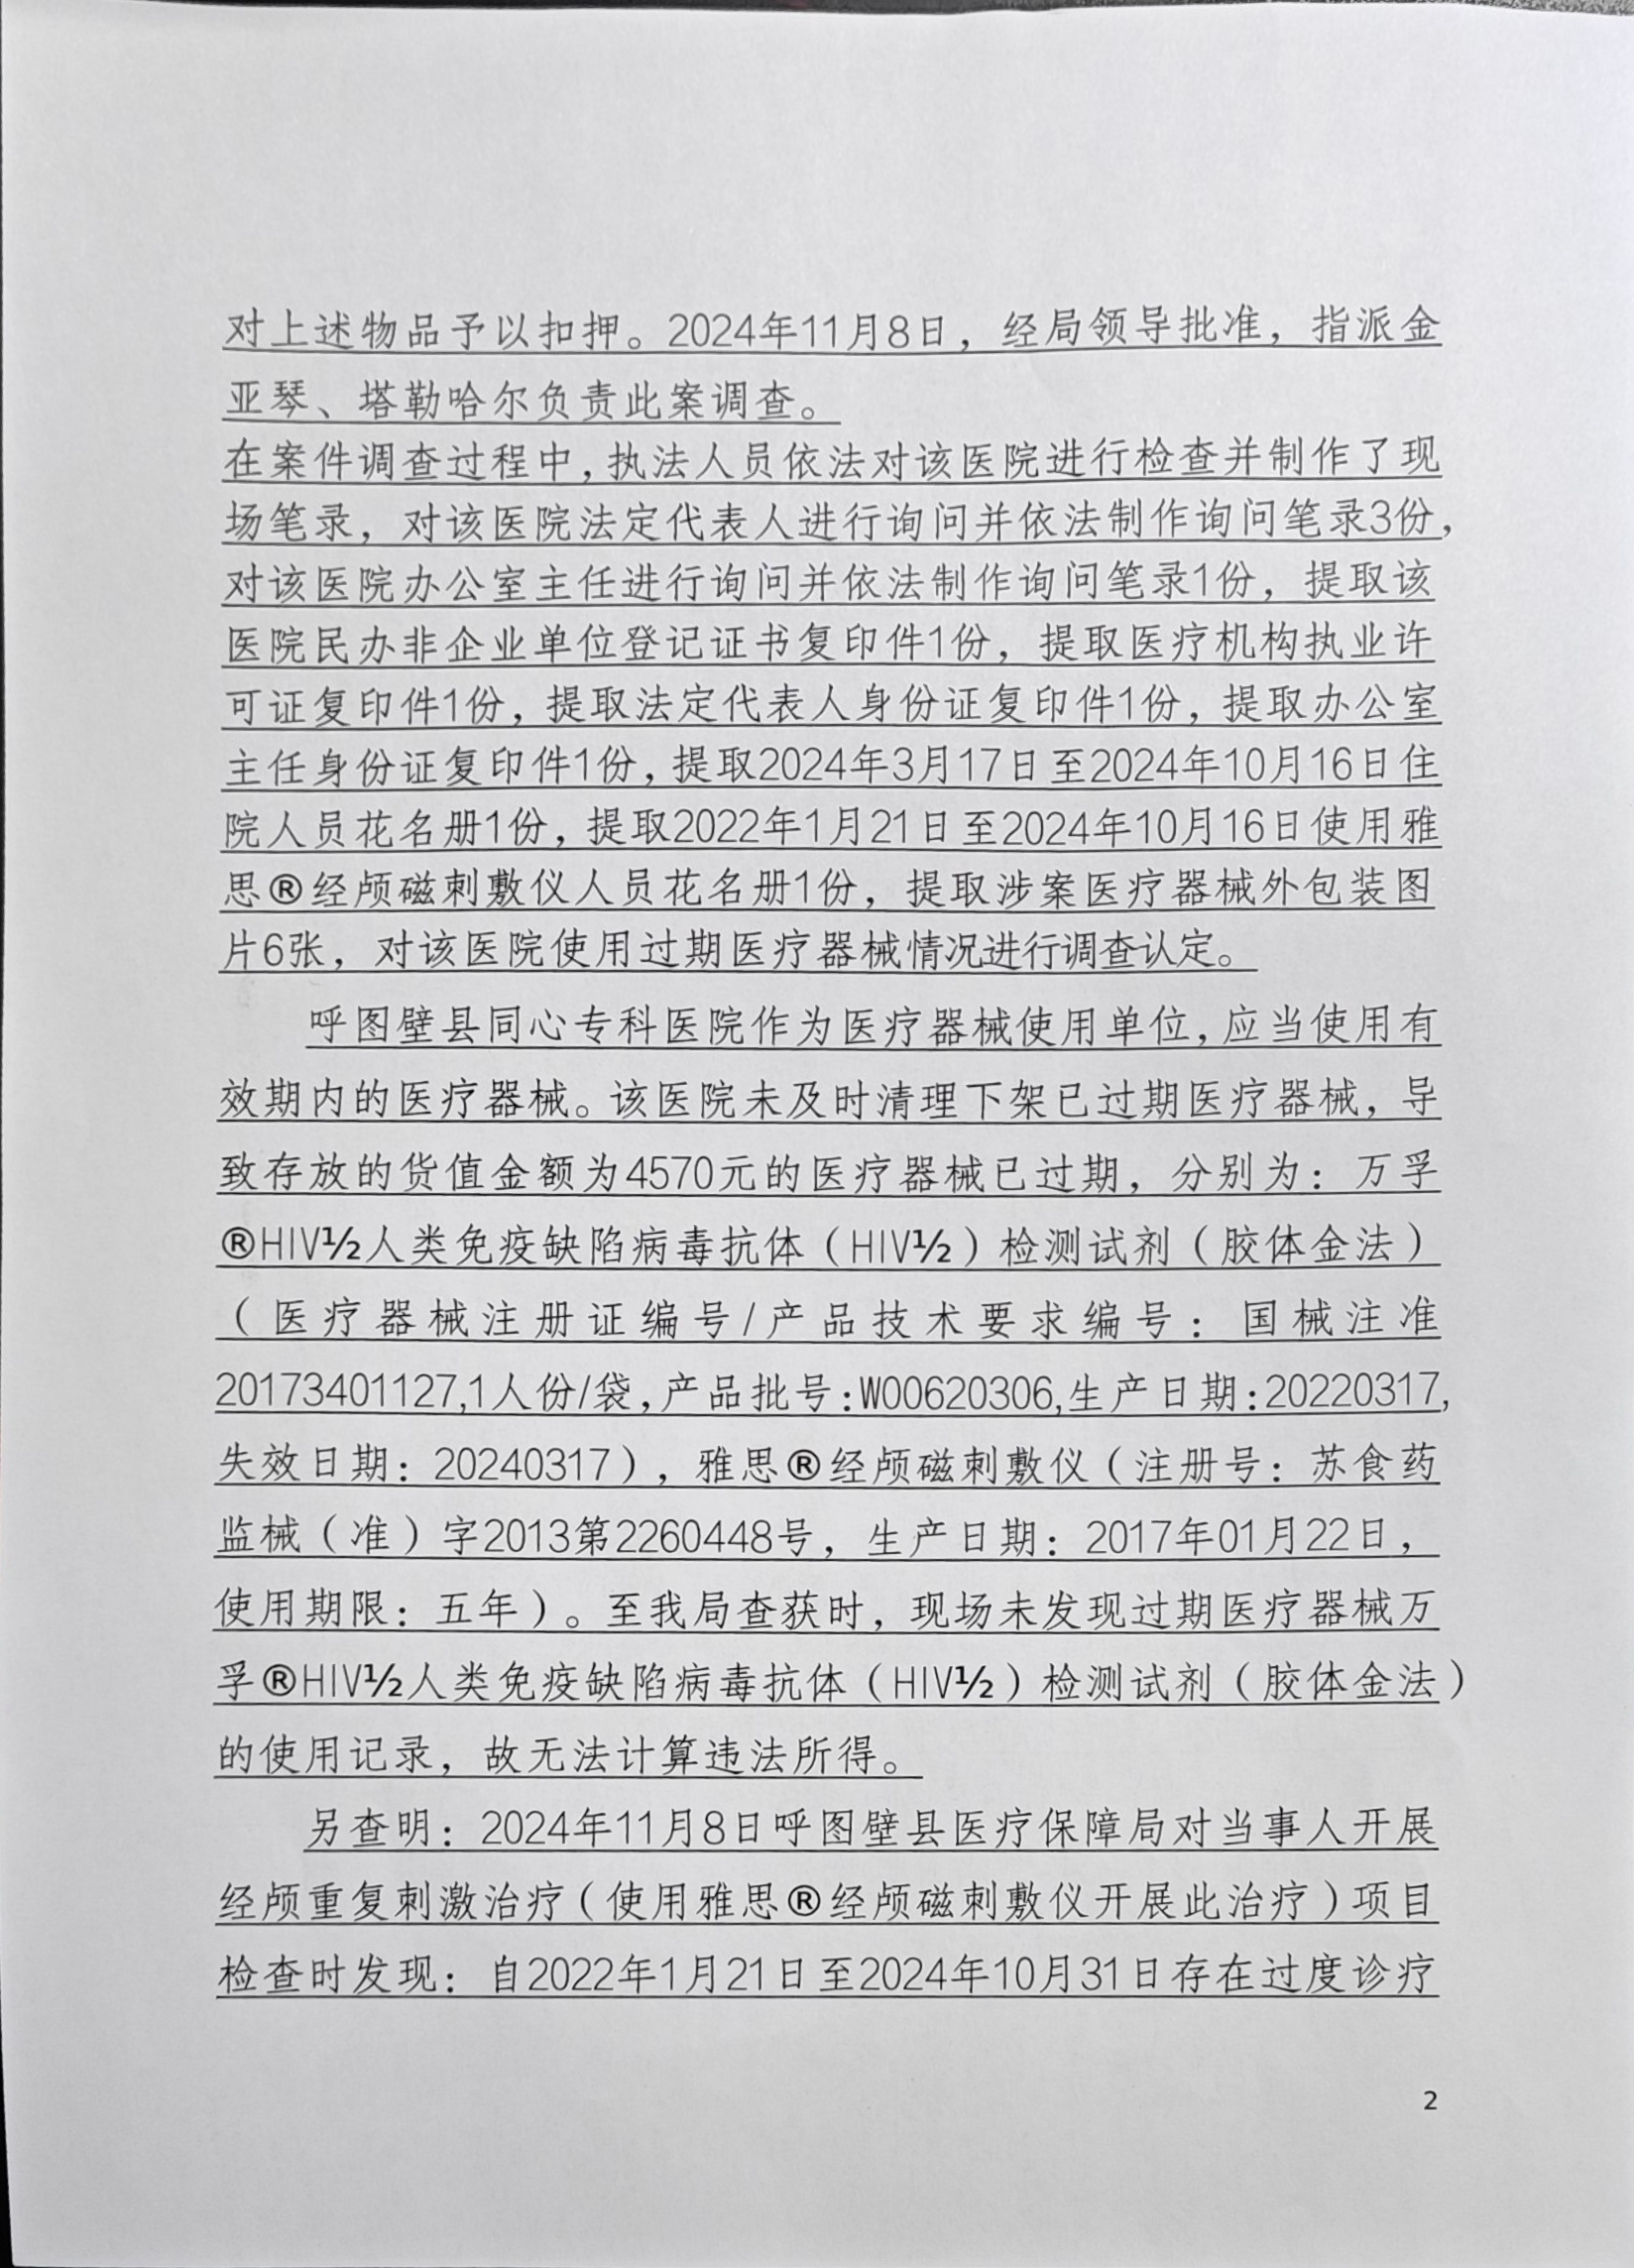 对上述物品予以扣押。2024年11月8日，经局领导批准，指派金
亚琴、塔勒哈尔负责此案调查。
在案件调查过程中,执法人员依法对该医院进行检查并制作了现
场笔录，对该医院法定代表人进行询问并依法制作询问笔录3份，
对该医院办公室主任进行询问并依法制作询问笔录1份，提取该
医院民办非企业单位登记证书复印件1份，提取医疗机构执业许
可证复印件1份，提取法定代表人身份证复印件1份，提取办公室
主任身份证复印件1份，提取2024年3月17日至2024年10月16日住
院人员花名册1份，提取2022年1月21日至2024年10月16日使用雅
思®经颅磁刺敷仪人员花名册1份，提取涉案医疗器械外包装图
片6张，对该医院使用过期医疗器械情况进行调查认定。
呼图壁县同心专科医院作为医疗器械使用单位,应当使用有
效期内的医疗器械。该医院未及时清理下架已过期医疗器械，导
致存放的货值金额为4570元的医疗器械已过期，分别为：万孚
®HIV½人类免疫缺陷病毒抗体（HIV½）检测试剂（胶体金法）
（医疗器械注册证编号/产品技术要求编号：国械注准
20173401127,1人份/袋,产品批号:W00620306,生产日期:20220317,
失效日期：20240317），雅思®经颅磁刺敷仪（注册号：苏食药
监械（准）字2013第2260448号，生产日期：2017年01月22日，
使用期限：五年）。至我局查获时，现场未发现过期医疗器械万
孚®HIV½人类免疫缺陷病毒抗体（HIV½）检测试剂（胶体金法）
的使用记录，故无法计算违法所得。
另查明：2024年11月8日呼图壁县医疗保障局对当事人开展
经颅重复刺激治疗（使用雅思®经颅磁刺敷仪开展此治疗）项目
检查时发现：自2022年1月21日至2024年10月31日存在过度诊疗
2